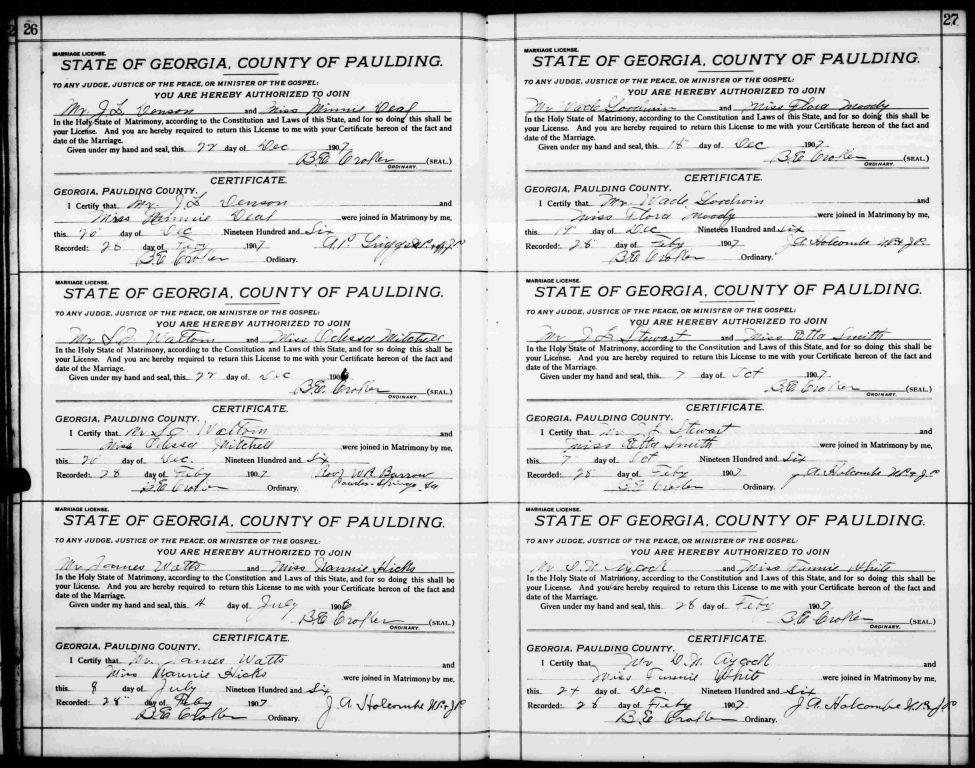 26
MARRIAGE LICENSE.
STATE OF GEORGIA, COUNTY OF PAULDING.
TO ANY JUDGE, JUSTICE OF THE PEACE, OR MINISTER OF THE GOSPEL:
YOU ARE HEREBY AUTHORIZED TO JOIN
Mr. J. L. Denson and Miss Minnie Deal
In the Holy State of Matrimony, according to the Constitution and Laws of this State, and for so doing this shall be
your License. And you are hereby required to return this License to me with your Certificate hereon of the fact and
date of the Marriage.
Given under my hand and seal, this 22 day of Dec 1907
B. E. Croker (SEAL.)
ORDINARY.
CERTIFICATE.
GEORGIA, PAULDING COUNTY.
I Certify that Mr. J. L Denson and
Miss Minnie Deal were joined in Matrimony by me,
this 20" day of Dec Nineteen Hundred and Six
Recorded: 28 day of Feby 1907
B. E. Croker Ordinary.
MARRIAGE LICENSE.
STATE OF GEORGIA, COUNTY OF PAULDING.
TO ANY JUDGE, JUSTICE OF THE PEACE, OR MINISTER OF THE GOSPEL:
YOU ARE HEREBY AUTHORIZED TO JOIN
Mr Waltom and Miss Odessa Mitchell
In the Holy State of Matrimony, according to the Constitution and Laws of this State, and for so doing this shall be
your License. And you are hereby required to return this License to me with your Certificate hereon of the fact and
date of the Marriage.
Given under my hand and seal, this 22 day of Dec 1906
B. E. Croker (SEAL.)
ORDINARY.
CERTIFICATE.
GEORGIA, PAULDING COUNTY.
I Certify that Mr Waltom and
Miss Odessa Mitchell were joined in Matrimony by me,
this 20" day of Dec. Nineteen Hundred and Six
Recorded: 28 day of Feby 1907 Rev W. R. Barrow
B. E. Croker Ordinary. Powder Springs, Ga
MARRIAGE LICENSE.
STATE OF GEORGIA, COUNTY OF PAULDING.
TO ANY JUDGE, JUSTICE OF THE PEACE, OR MINISTER OF THE GOSPEL:
YOU ARE HEREBY AUTHORIZED TO JOIN
Mr James Watts and Miss Nannie Hicks
In the Holy State of Matrimony, according to the Constitution and Laws of this State, and for so doing this shall be
your License. And you are hereby required to return this License to me with your Certificate hereon of the fact and
date of the Marriage.
Given under my hand and seal, this 4 day of July 1906
B. E. Croker (SEAL.)
ORDINARY.
CERTIFICATE.
GEORGIA, PAULDING COUNTY.
I Certify that Mr James Watts and
Miss Nannie Hicks were joined in Matrimony by me,
this 8 day of July Nineteen Hundred and Six
Recorded: 28" day of Feby 1907 J. A. Holcombe N.P. & J.P.
B. E. Croker Ordinary.
27
MARRIAGE LICENSE.
STATE OF GEORGIA, COUNTY OF PAULDING.
TO ANY JUDGE, JUSTICE OF THE PEACE, OR MINISTER OF THE GOSPEL:
YOU ARE HEREBY AUTHORIZED TO JOIN
Mr. Wade Goodwin and Miss Flora Moody
In the Holy State of Matrimony, according to the Constitution and Laws of this State, and for so doing this shall be
your License. And you are hereby required to return this License to me with your Certificate hereon of the fact and
date of the Marriage.
Given under my hand and seal, this 18" day of Dec 1907
B. E. Croker (SEAL.)
ORDINARY.
CERTIFICATE.
GEORGIA, PAULDING COUNTY.
I Certify that Mr. Wade Goodwin and
Miss Flora Moody were joined in Matrimony by me,
this 19" day of Dec Nineteen Hundred and Six
Recorded: 28" day of Feby 1907 J. A. Holcombe N.P. & J.P.
B. E. Croker Ordinary.
MARRIAGE LICENSE.
STATE OF GEORGIA, COUNTY OF PAULDING.
TO ANY JUDGE, JUSTICE OF THE PEACE, OR MINISTER OF THE GOSPEL:
YOU ARE HEREBY AUTHORIZED TO JOIN
Mr. J. L. Stewart and Miss Etta Smith
In the Holy State of Matrimony, according to the Constitution and Laws of this State, and for so doing this shall be
your License. And you are hereby required to return this License to me with your Certificate hereon of the fact and
date of the Marriage.
Given under my hand and seal, this 7 day of Oct 1907
B. E. Croker (SEAL.)
ORDINARY.
CERTIFICATE.
GEORGIA, PAULDING COUNTY.
I Certify that Mr. J. L. Stewart and
Miss Etta Smith were joined in Matrimony by me,
this 7 day of Oct Nineteen Hundred and Six
Recorded: 28" day of Feby 1907 J. A. Holcombe N.P. & J.P.
B. E. Croker Ordinary.
MARRIAGE LICENSE.
STATE OF GEORGIA, COUNTY OF PAULDING.
TO ANY JUDGE, JUSTICE OF THE PEACE, OR MINISTER OF THE GOSPEL:
YOU ARE HEREBY AUTHORIZED TO JOIN
Mr D. N. Aycock and Miss Fannie White
In the Holy State of Matrimony, according to the Constitution and Laws of this State, and for so doing this shall be
your License. And you are hereby required to return this License to me with your Certificate hereon of the fact and
date of the Marriage.
Given under my hand and seal, this 28 day of Feby 1907
B. E. Croker (SEAL.)
ORDINARY.
CERTIFICATE.
GEORGIA, PAULDING COUNTY.
I Certify that Mr D. N. Aycock and
Miss Fannie White were joined in Matrimony by me,
this 24 day of Dec. Nineteen Hundred and Six
Recorded: 28 day of Feby 1907 J. A. Holcombe N.P. & J.P.
B. E. Croker Ordinary.